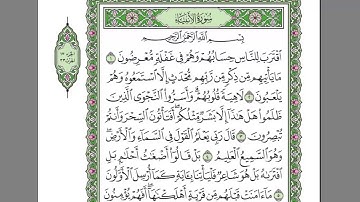 سورة الأنبياء
بسم الله الرحمن الرحيم
اقترب للناس حسابهم وهم في غفلة معرضون ١
ما يأتيهم من ذكر من ربهم محدث إلا استمعوه وهم
يلعبون ٢ لاهية قلوبهم وأسروا النجوى الذين
ظلموا هل هذا إلا بشر مثلكم أفتأتون السحر وأنتم
تبصرون ٣ قال ربي يعلم القول في السماء والأرض
وهو السميع العليم ٤ بل قالوا أضغاث أحلام بل
افتراه بل هو شاعر فليأتنا بآية كما أرسل الأولون ٥
ما آمنت قبلهم من قرية أهلكناها أفهم يؤمنون